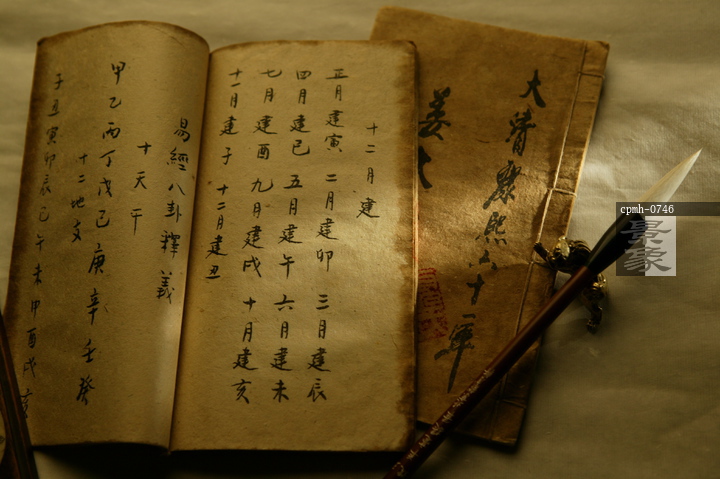 大清康熙六十一年
姜
十二月建
正月建寅 二月建卯 三月建辰
四月建巳 五月建午 六月建未
七月建酉 九月建戌 十月建亥
十一月建子 十二月建丑
易經八卦釋義
十天干
甲乙丙丁戊己庚辛壬癸
十二地支
子丑寅卯辰巳午未申酉戌亥
cpmh-0746
景象